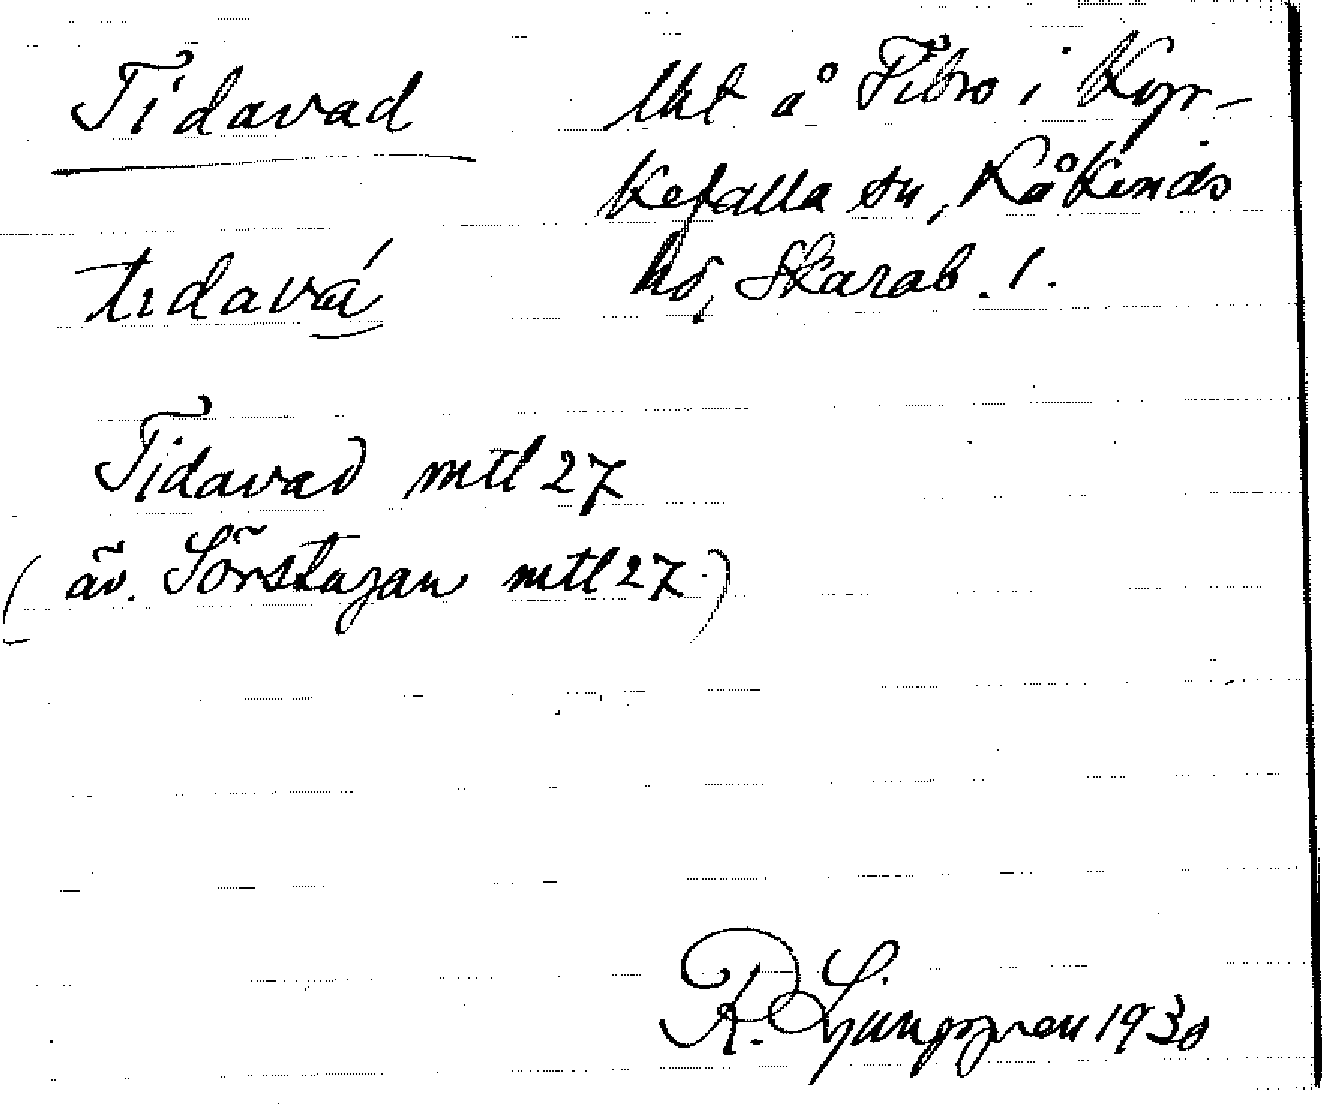 Tidavad
lht å Fibro i Kyr-
kefalla sn, Kåkinds
hd, Skarab. l.
tıdavá
Tidavad mtl 27
(äv. Sörstugan mtl 27.)
R. Ljunggren 1930